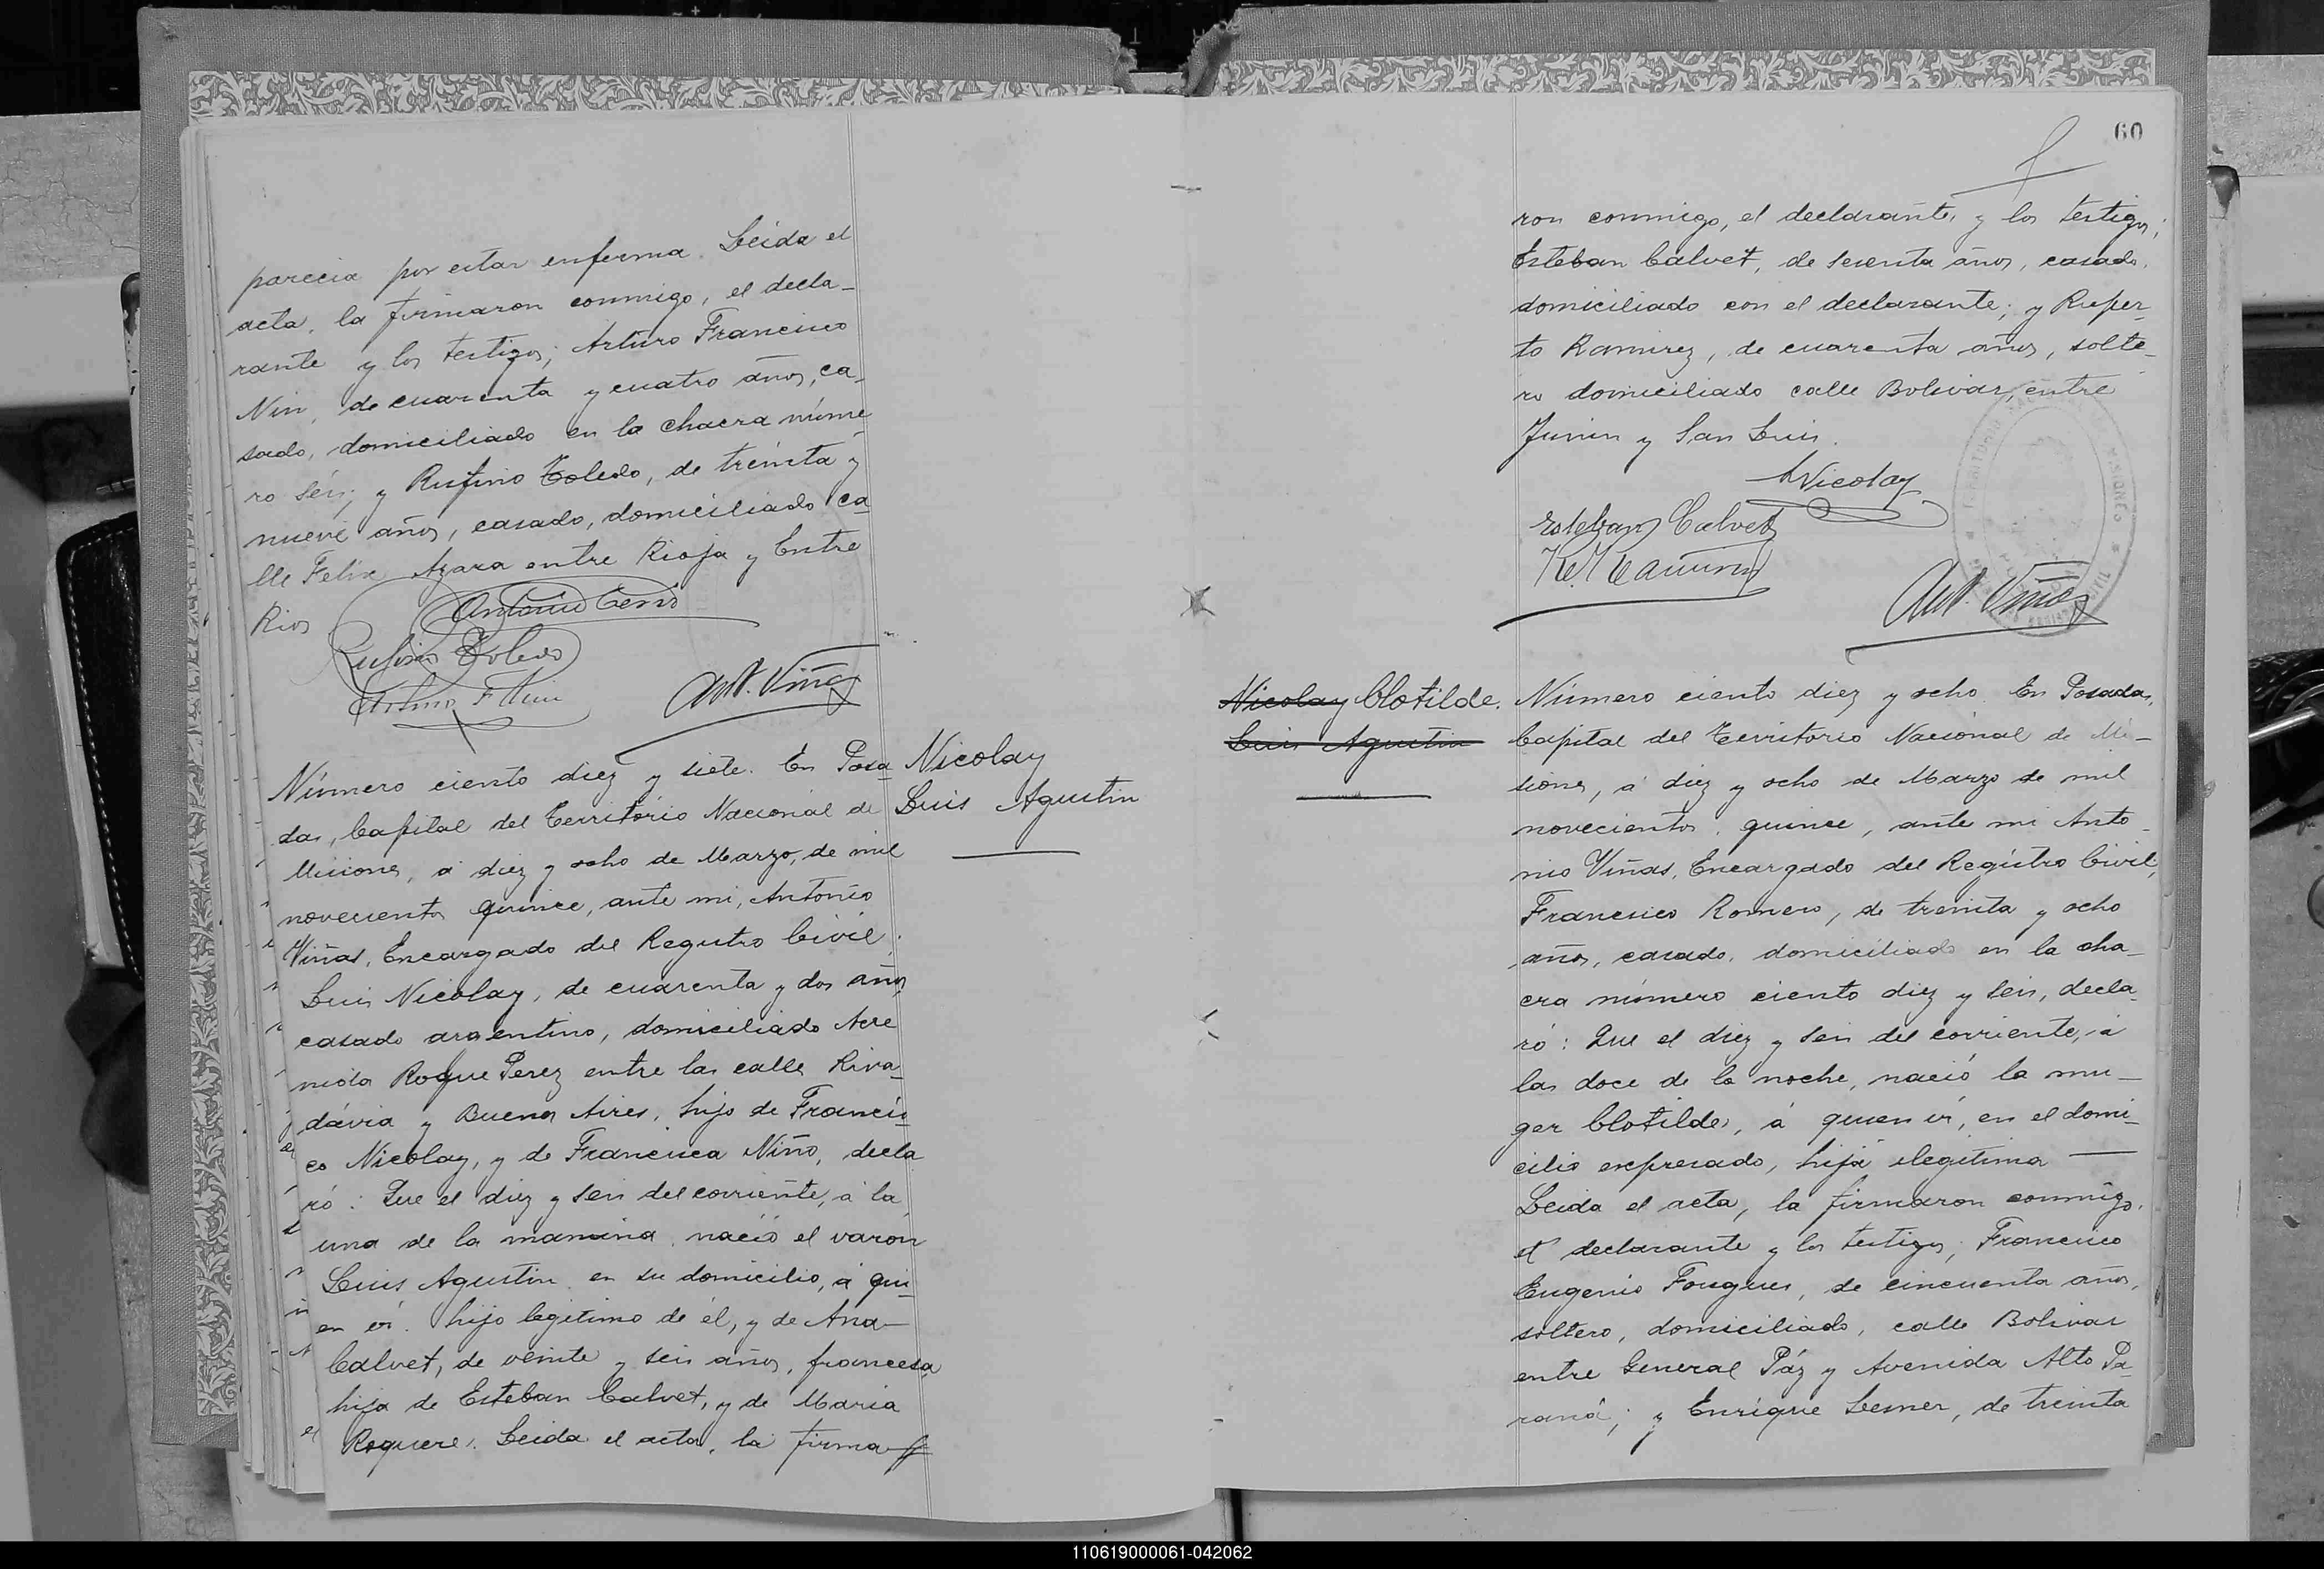 parecia por estar enferma. Leida el
acta, la firmaron conmigo, el decla-
rante y los testigos; Arturo Francisco
Nin, de cuarenta y cuatro años, ca-
sado, domiciliado en la chacra núme-
ro séis; y Rufino Toledo, de tréinta y
nueve años, casado, domiciliado ca-
lle Felix Azara entre Rioja y Entre
Rios
Rufino Toledo
Arturo F Nin
Ant. Viñas
Número ciento diez y siete. En Posa-
das, Capital del Territorio Nacional de
Misiones, á diez y ocho de Marzo, de mil
novecientos quince, ante mi, Antonio
Viñas, Encargado del Registro Civil,
Luis Nicolay, de cuarenta y dos años,
casado argentino, domiciliado Ave
nida Roque Perez entre las calles Riva-
dávia y Buenos Aires, hijo de Francis-
co Nicolay, y de Francisca Niño, decla
ró: Que el diez y seis del corriente, á la
una de la manana nació el varon
Luis Agustin en su domicilio, á qui-
en ví. hijo legitimo de él, y de Ana
Calvet, de veinte y seis años, francesa
hija de Esteban Calvet, y de Maria
Roquere. Leida el acta, la firma
Nicolay
Luis Agustin
60
ron conmigo, el declarante, y los testigos;
Esteban Calvet, de sesenta años, casado,
domiciliado con el declarante; y Ruper-
to Ramirez, de cuarenta años, solte-
ro domiciliado calle Bolivar, entre
Junin y San Luis.
LNicolay
Esteban Calvet
R. Ramirez
Ant. Viñas
Nicolay Clotilde.
Luis Agustin
Número ciento diez y ocho. En Posadas,
Capital del Territorio Nacional de Mi-
siones, á diez y ocho de Marzo de mil
novecientos quince, ante mi Anto-
nio Viñas, Encargado del Registro Civil,
Francisco Romero, de treinta y ocho
años, casado, domiciliado en la cha-
cra número ciento diez y seis, decla-
ró: Que el diez y seis del corriente, á
las doce de la noche, nació la mu-
ger Clotilde, á quien ví, en el domi-
cilio expresado, hija ilegitima
Leida el acta, la firmaron conmigo,
el declarante y los testigos; Francisco
Eugenio Fouques, de cincuenta años,
soltero, domiciliado, calle Bolivar
entre General Páz y Avenida Alto Pa-
raná; y Enrique Lesner, de treinta
110619000061-042062